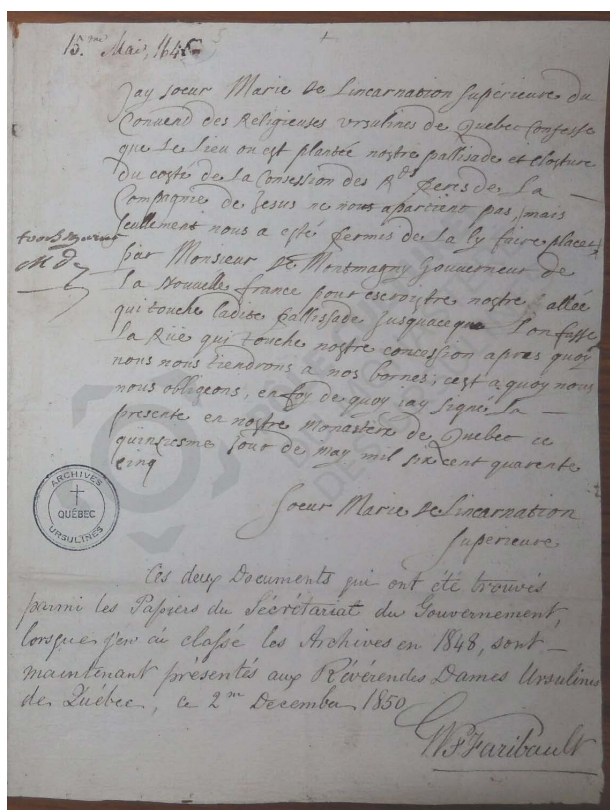 15.me Mai, 1645
Jay soeur Marie de Lincarnation supérieure du
Convend des Religieuses ursulines de Quebec confesse
que le lieu ou est plantée nostre pallisade et closture
du costé de la Consession des Rds peres de la —
Compagnie de Jesus ne nous apartient pas, mais
seullement nous a esté permis de la ly faire placer
par Monsieur de Montmagny Gouverneur de
la nouvelle france pour escroistre nostre allée
qui touche ladite pallissade Jusquaceque l'on fasse
la Rüe qui touche nostre concession apres quoy
nous nous tiendrons a nos bornes, cest a quoy nous
nous obligeons, en foy de quoy iay signé la —
presente en nostre monastere de Quebec ce
quinsiesme Jour de may mil six cent quarente
cinq
Soeur Marie de Lincarnation
superieure
ARCHIVES
QUÉBEC
URSULINES
Ces deux Documents qui ont été trouvés
parmi les Papiers du Sécrétariat du Gouvernement,
lorsque j'en ai classé les Archives en 1848, sont —
maintenant présentés aux Révérendes Dames Ursulines
de Québec, ce 2me Decembre 1850
GBFaribault